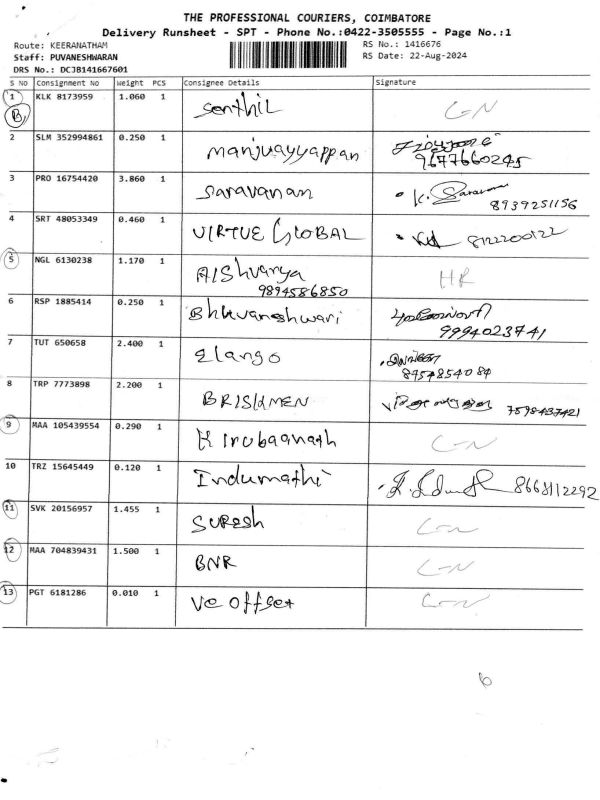 THE PROFESSIONAL COURIERS, COIMBATORE
Delivery Runsheet - SPT - Phone No.:0422-3505555 - Page No.:1
Route: KEERANATHAM
RS No.: 1416676
Staff: PUVANESHWARAN
RS Date: 22-Aug-2024
DRS No.: DCJB141667601
S No Consignment No Weight PCS Consignee Details Signature
1 KLK 8173959 1.060 1 Senthil
B
2 SLM 352994861 0.250 1 Manjuayyappan
9677660245
3 PRO 16754420 3.860 1 Saravanan K. Saravana
8939251156
4 SRT 48053349 0.460 1 VIRTUE GLOBAL 8122200122
5 NGL 6130238 1.170 1 AIShvarya HR
9894586850
6 RSP 1885414 0.250 1 Bhuvaneshwari
9994023741
7 TUT 650658 2.400 1 Elango
8 TRP 7773898 2.200 1 7598437421
9 MAA 105439554 0.290 1 Kirubaanath
10 TRZ 15645449 0.120 1 Indumathi 8668112292
11 SVK 20156957 1.455 1 SURESh
12 MAA 704839431 1.500 1 BNR
13 PGT 6181286 0.010 1 Ve offset
6